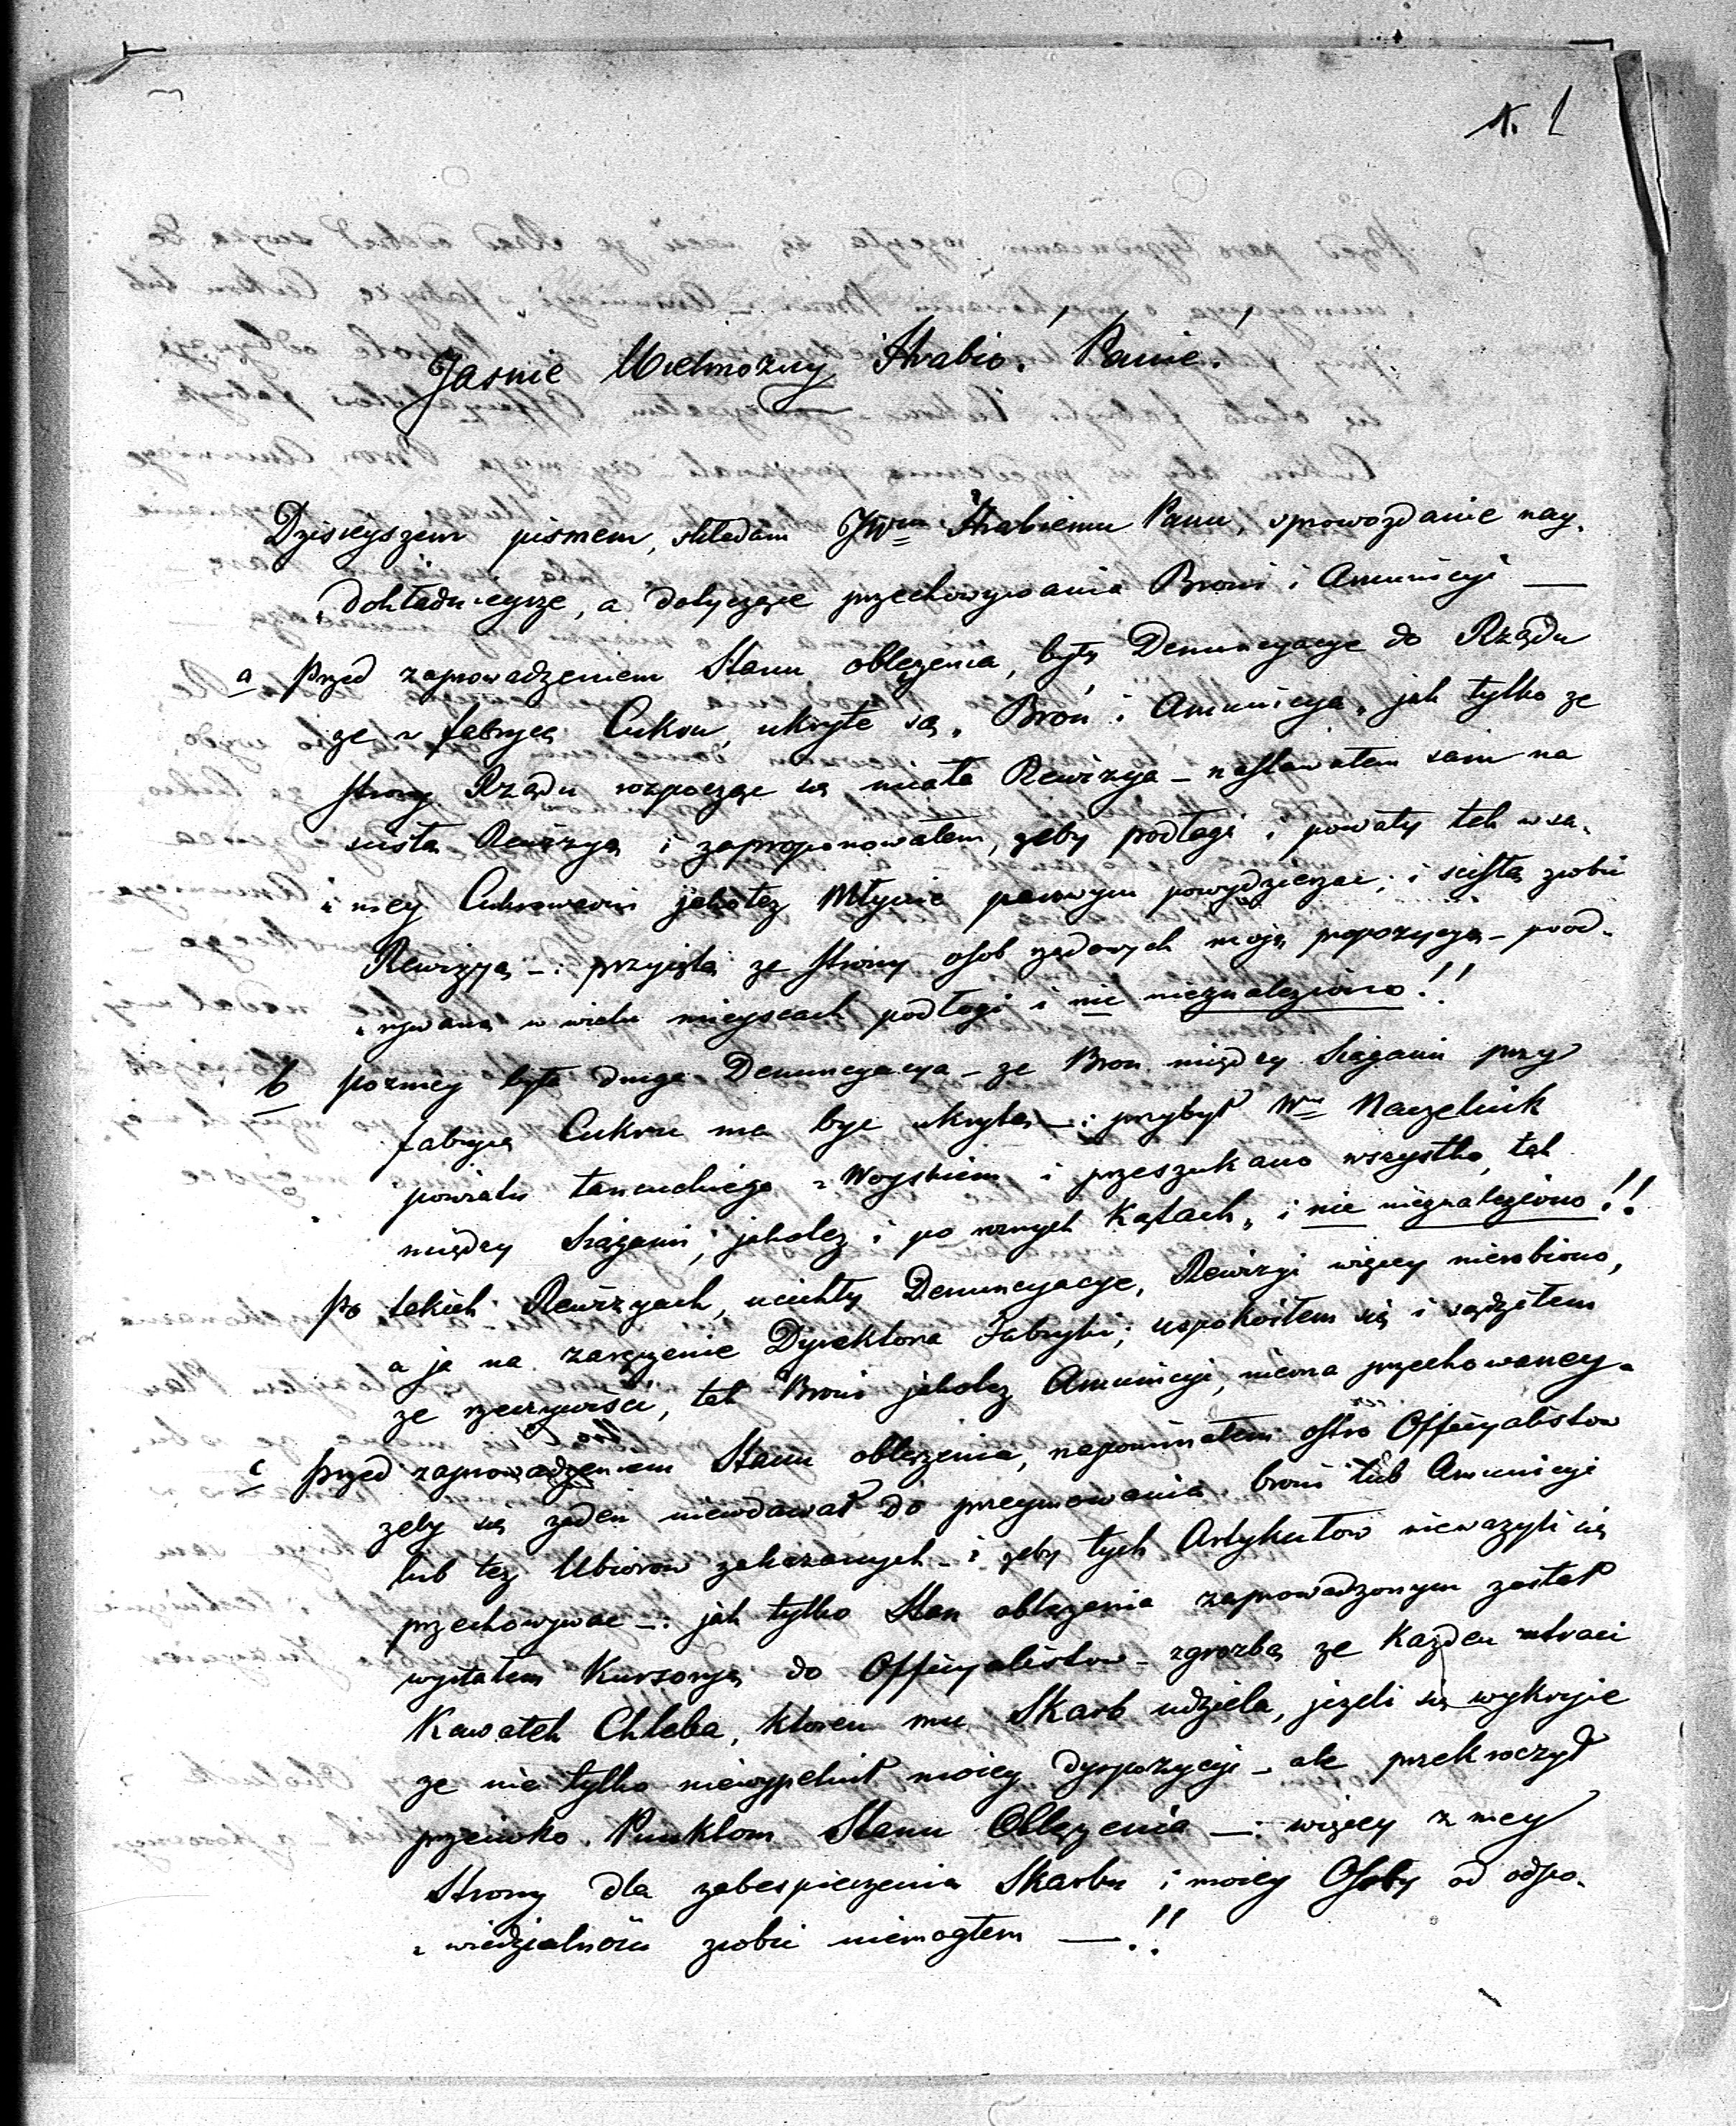 1.
Jasnie Wielmożny Hrabio! Panie!
Dzisieyszem pismem, składam JWmu Hrabiemu Panu, sprowozdanie nay-
dokładnieysze, a dotyczące przechowywania Broni i Amunicyi —
a przed zaprowadzeniem Stanu oblężenia, były Denuncyacye do Rządu
ze w fabryce Cukru, ukryte są, Broń i Amunicya, jak tylko ze
strony Rządu rozpocząć się miała Rewizya – nastawałem sam na
ścisłą Rewizyą i zaproponowałem, zeby podłogi i powały tak w sa-
mey Cukrowarni jakotez Młynie parowym powydzierzać; i ścisłą zrobić
Rewizyą –: przyięta ze strony osob rządowych moją propozycyą – pood-
rywano w wielu mieyscach podłogi i nic nieznaleziono!!
b pozniey była druga Denuncyacya – ze Bron między Siągami przy
fabryce Cukru ma byc ukryta –: przybył Wny Naczelnik
powiatu łancuckiego z Woyskiem i przeszukano wszystko, tak
między Siągami, jakotez i po roznych Kątach, i nic nieznaleziono!!
Po takich Rewizyach, ucichły Denuncyacye, Rewizyi więcey nierobiono,
a ja na zaręczenie Dyrektora Fabryki; uspokoiłem się i sądziłem
ze rzeczywiści, tak Broni jakotez Amunicyi, niema przechowaney.
c przed zaprowadzeniem Stanu oblęzenia, napominałem ostro Officyalistow
zeby się zaden niewdawał do przeymowania broni lub Amunicyi
lub tez Ubiorow zakazanych – i zeby tych Artykułow niewazyli się
przechowywac –: jak tylko Stan oblęzenia zaprowadzonym został
wysłałem Kursoryą do Officyalistow – z grozbą ze Kazden utraci
Kawałek Chleba, ktoren mu Skarb udziela, jezeli się wykryie
ze nie tylko niewypełnił moiey dyspozycyi – ale przekroczył
przeciwko Punktom Stanu Oblęzenia –: więcey z mey
Strony dla zabespieczenia Skarbu i moiey Osoby od odpo-
wiedzialności zrobic niemogłem —!!